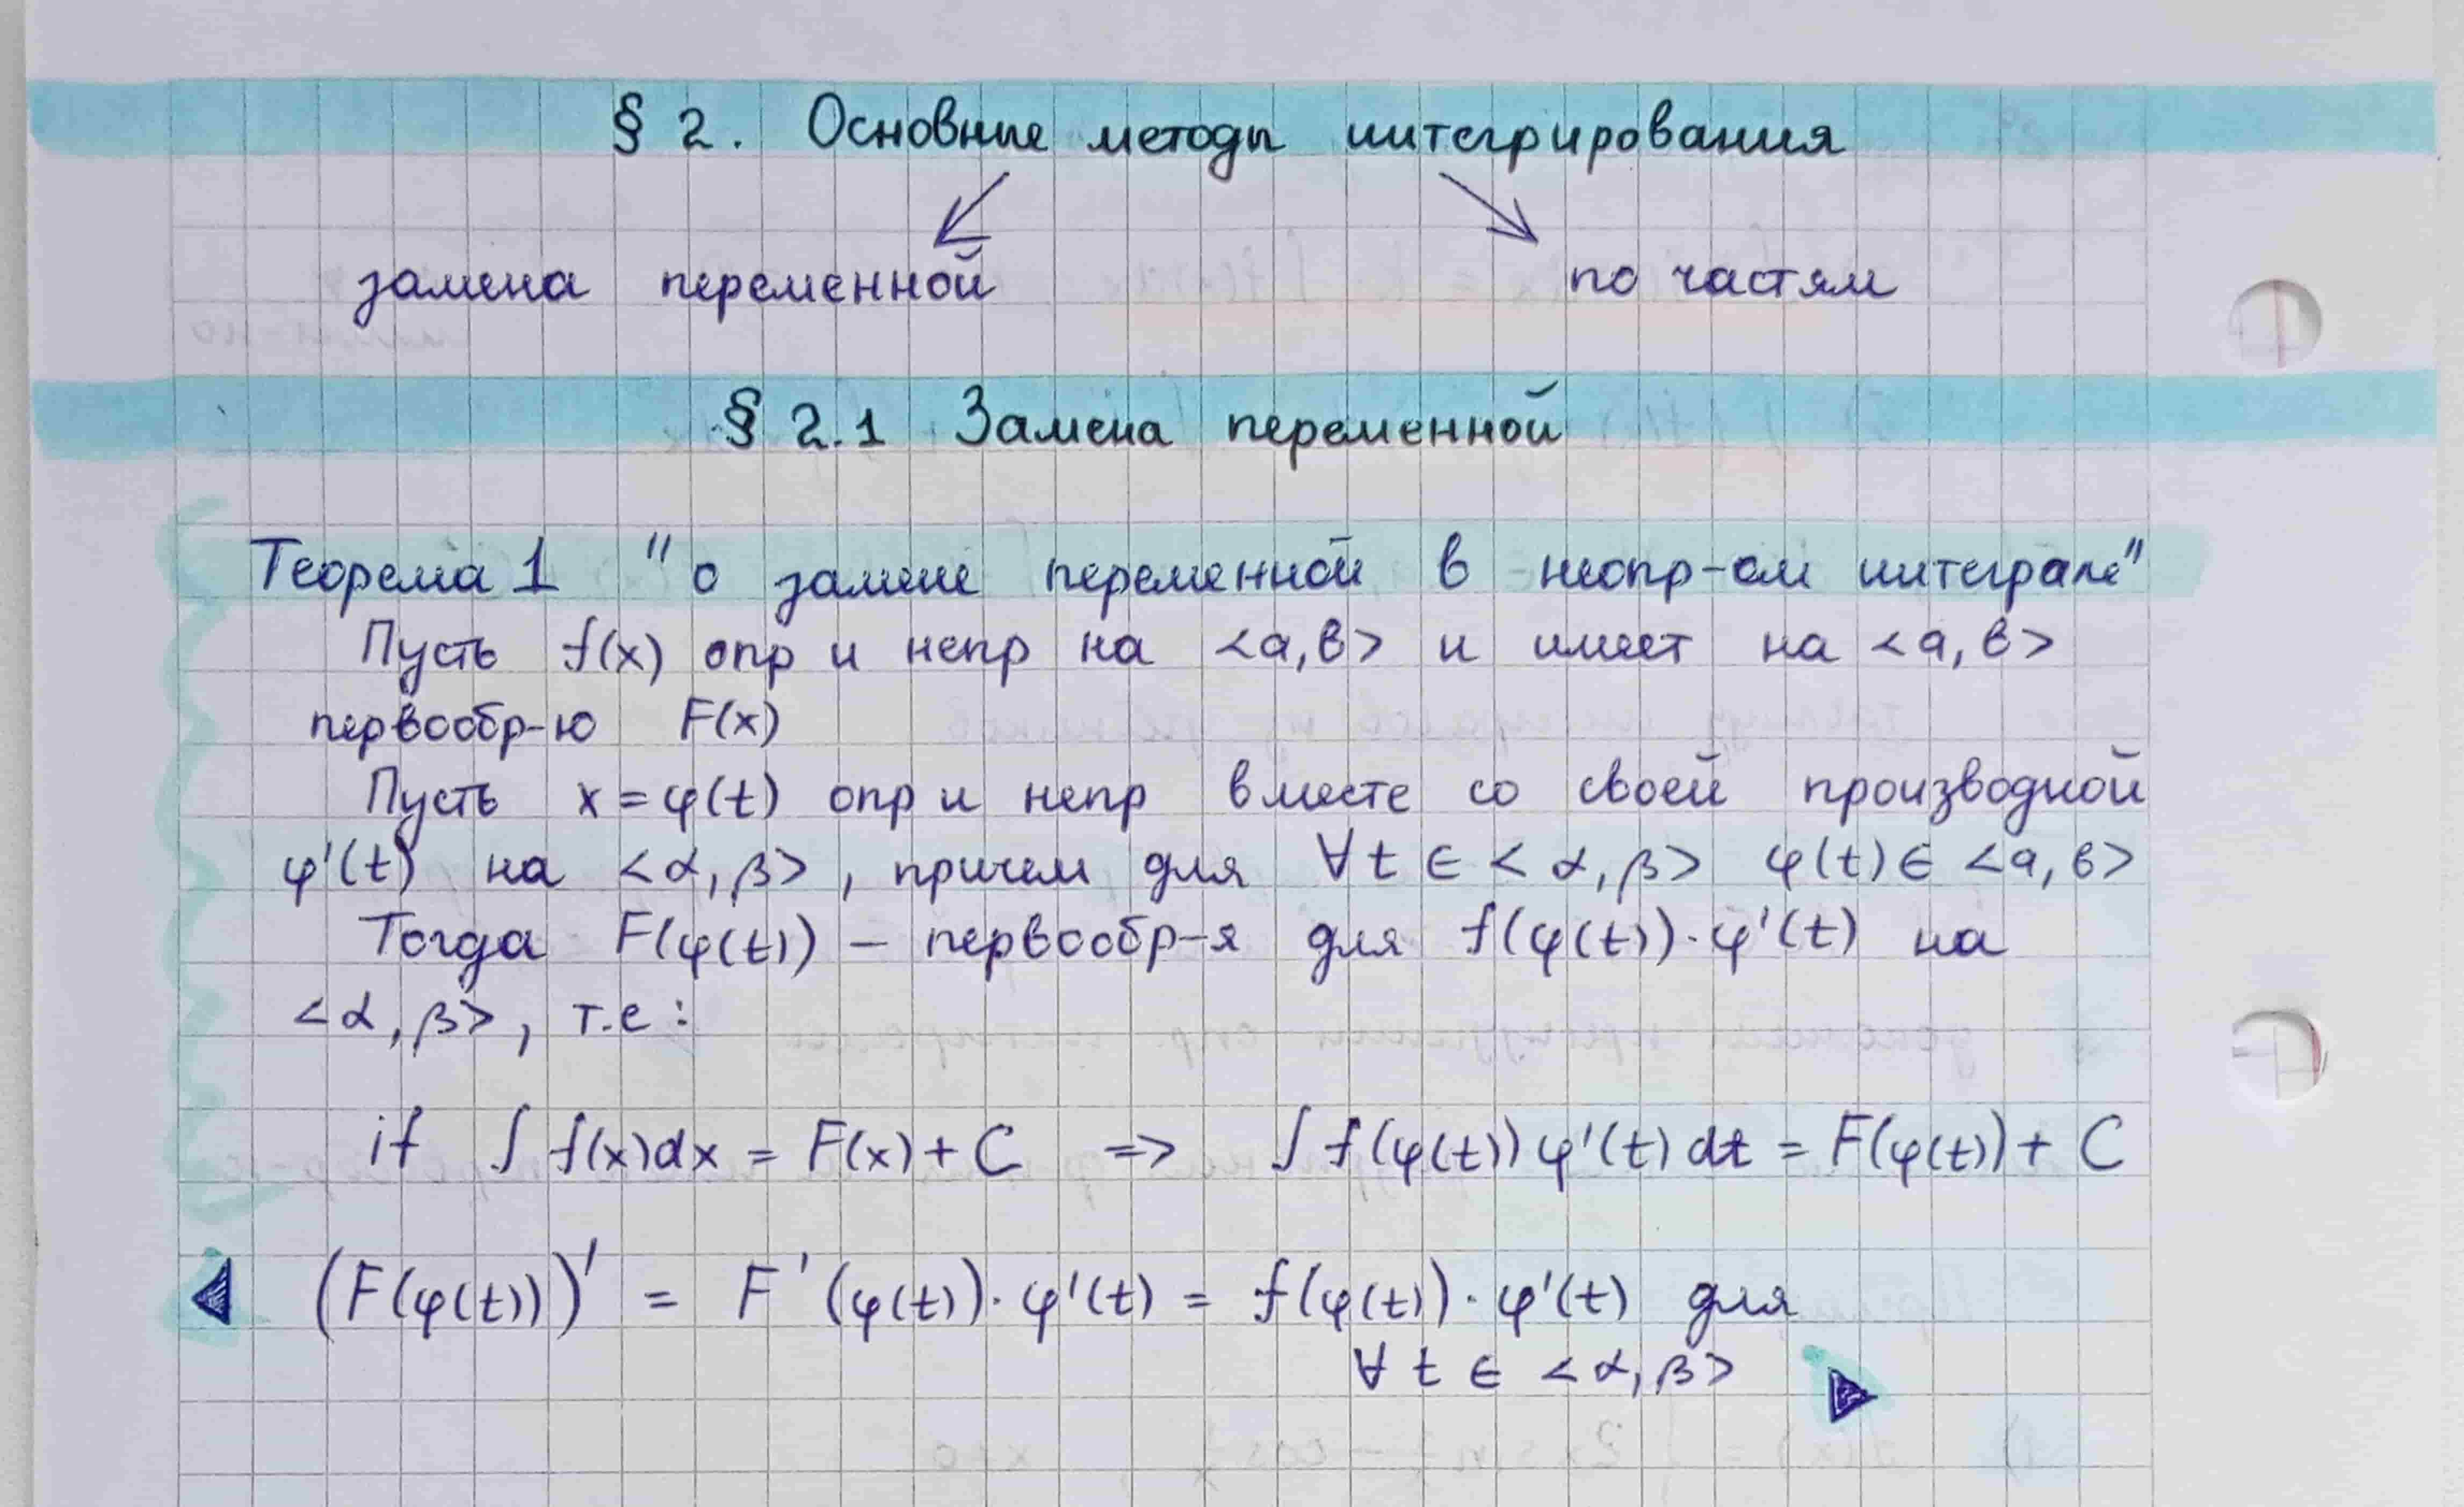 § 2. Основные методы интегрирования
замена переменной по частям
§ 2.1 Замена переменной
Теорема 1 "о замене переменной в неопр-ом интеграле"
Пусть f(x) опр и непр на <a,b> и имеет на <a,b>
первообр-ю F(x)
Пусть x = φ(t) опр и непр вместе со своей производной
φ'(t) на <α,β>, причем для ∀t ∈ <α,β> φ(t) ∈ <a,b>
Тогда F(φ(t)) – первообр-я для f(φ(t))·φ'(t) на
<α,β>, т.е:
if ∫ f(x)dx = F(x) + C => ∫ f(φ(t)) φ'(t) dt = F(φ(t)) + C
(F(φ(t)))' = F'(φ(t))·φ'(t) = f(φ(t))·φ'(t) для
∀ t ∈ <α,β>